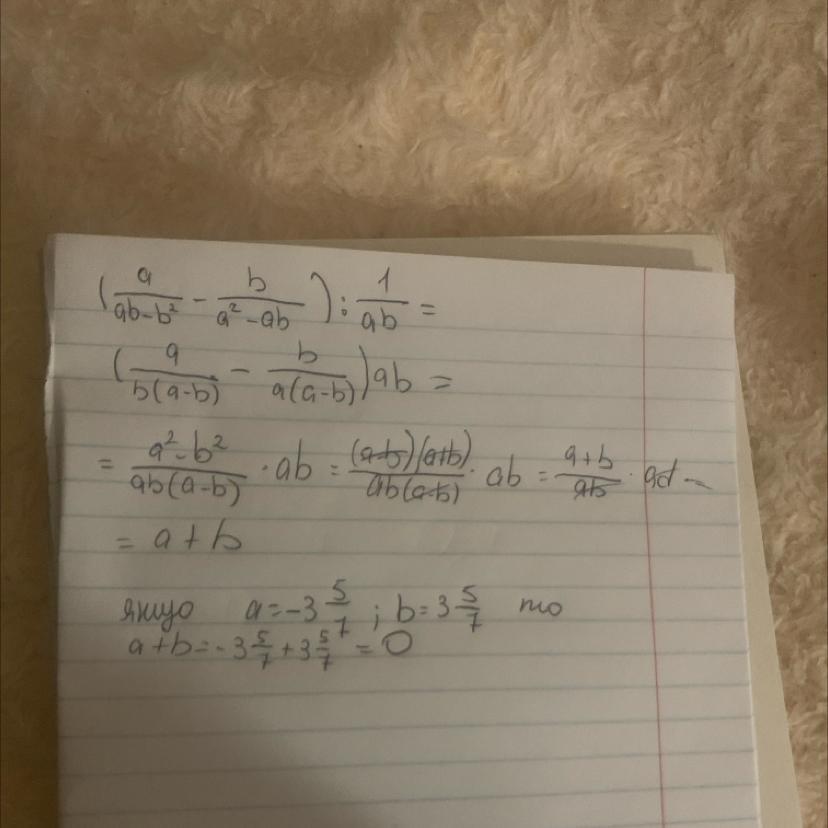 (a/(ab-b²) - b/(a²-ab)) : 1/(ab) =
(a/(b(a-b)) - b/(a(a-b)))ab =
= (a²-b²)/(ab(a-b)) · ab = ((a-b)(a+b))/(ab(a-b)) · ab = (a+b)/(ab) ·
= a + b
якщо a=-3 5/7 ; b=3 5/7 то
a+b=-3 5/7+3 5/7=0